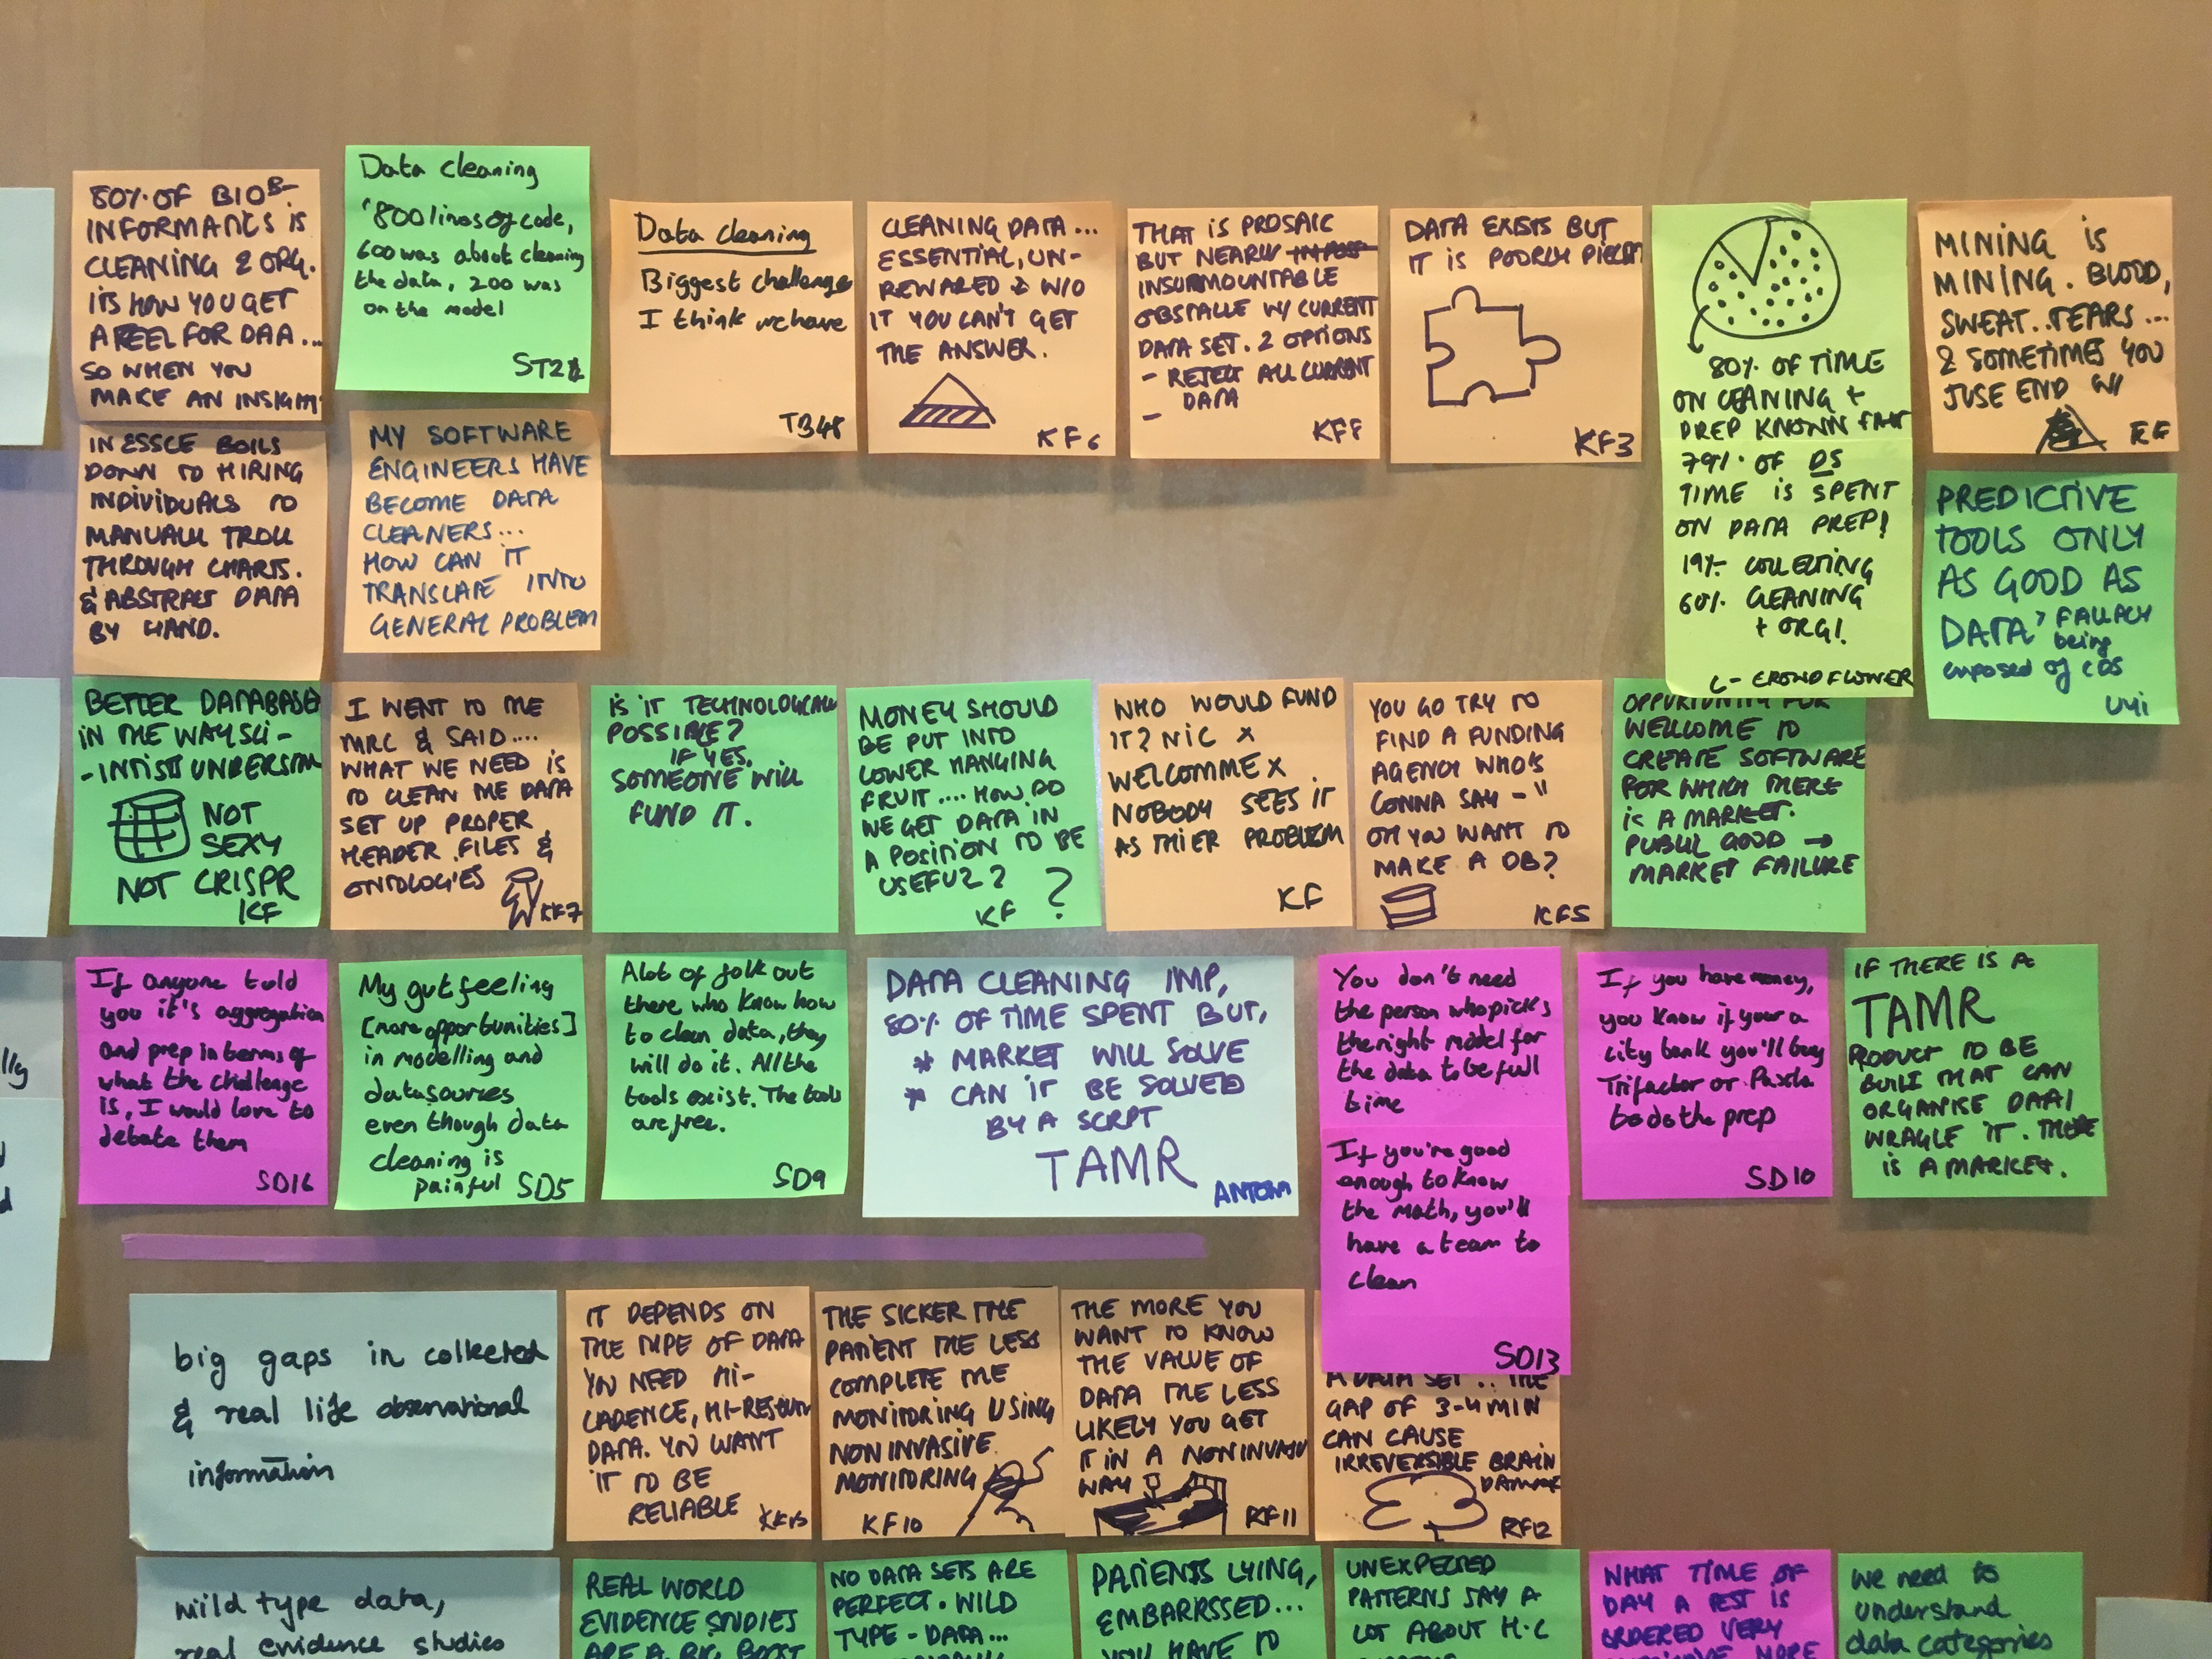 80% OF BIO
INFORMATICS IS
CLEANING & ORG.
ITS HOW YOU GET
A FEEL FOR DAA...
SO WHEN YOU
MAKE AN INSIGHT
Data cleaning
'800 lines of code,
600 was about cleaning
the data, 200 was
on the model
Data cleaning
Biggest challenge
I think we have
TB48
CLEANING DATA...
ESSENTIAL, UN-
REWARED & W/O
IT YOU CAN'T GET
THE ANSWER.
KF6
THAT IS PROSAIC
BUT NEARLY
INSURMOUNTABLE
OBSTACLE W/ CURRENT
DATA SET. 2 OPTIONS
- REJECT ALL CURRENT
DATA
-
KF8
DATA EXISTS BUT
IT IS POORLY
KF3
80% OF TIME
ON CEANING +
PREP KNOWN FACT
79% OF DS
TIME IS SPENT
ON DATA PREP!
19% COLLECTING
60% CLEANING
+ ORG!
C- CROWDFLOWER
MINING IS
MINING. BLOOD,
SWEAT..TEARS...
& SOMETIMES YOU
JUSE END W/
IN ESSCE BOILS
DOWN TO HIRING
INDIVIDUALS TO
MANUALL TROLL
THROUGH CHARTS.
& ABSTRACT DATA
BY HAND.
MY SOFTWARE
ENGINEERS HAVE
BECOME DATA
CLEANERS...
HOW CAN IT
TRANSLATE INTO
GENERAL PROBLEM
PREDICTIVE
TOOLS ONLY
AS GOOD AS
DATA? FALLACY
being
exposed of CDS
BETTER DATABASE
IN THE WAY SCI-
NOT
SEXY
NOT CRISPR
KF
I WENT TO THE
MRC & SAID....
WHAT WE NEED IS
TO CLEAN THE DATA
SET UP PROPER
HEADER FILES &
ONTOLOGIES
KF7
IS IT
POSSIBLE?
IF YES,
SOMEONE WILL
FUND IT.
MONEY SHOULD
BE PUT INTO
LOWER HANGING
FRUIT .... HOW DO
WE GET DATA IN
A POSITION TO BE
USEFUL?
KF ?
WHO WOULD FUND
IT? NIC X
WELCOMME X
NOBODY SEES IT
AS THIER PROBLEM
KF
YOU GO TRY TO
FIND A FUNDING
AGENCY WHO'S
GONNA SAY - "
OH YOU WANT TO
MAKE A DB?
KF5
OPPORTUNITY FOR
WELLCOME TO
CREATE SOFTWARE
FOR WHICH THERE
IS A MARKET.
PUBLIC GOOD →
MARKET FAILURE
If anyone told
you it's aggregation
and prep in terms of
what the challenge
is, I would love to
debate them
SD16
My gut feeling
[more opportunities]
in modelling and
datasources
even though data
cleaning is
painful SD5
Alot of folk out
there who know how
to clean data, they
will do it. All the
tools exist. The tools
are free.
SD9
DATA CLEANING IMP,
80% OF TIME SPENT BUT,
* MARKET WILL SOLVE
* CAN IT BE SOLVED
BY A SCRPT
TAMR
You don't need
the person who picks
the right model for
the data to be full
time
If you're good
enough to know
the math, you'll
have a team to
clean
SD13
If you have money,
you know if your a
city bank you'll buy
Trifactor or Paxata
to do the prep
SD10
IF THERE IS A
TAMR
PRODUCT TO BE
BUILT THAT CAN
ORGANISE DAAI
WRAGLE IT. THERE
IS A MARKET.
big gaps in collected
& real life observational
information
IT DEPENDS ON
THE TYPE OF DATA
YOU NEED HI-
CADENCE,
DATA. YOU WANT
IT TO BE
RELIABLE
THE SICKER THE
PATIENT THE LESS
COMPLETE THE
MONITORING USING
NON INVASIVE
MONITORING
KF10
THE MORE YOU
WANT TO KNOW
THE VALUE OF
DATA THE LESS
LIKELY YOU GET
IT IN A NON INVASIV
WAY
KF11
A DATA SET .. THE
GAP OF 3-4 MIN
CAN CAUSE
IRREVERSIBLE BRAIN
DAMAGE
KF12
wild type data,
real evidence studies
REAL WORLD
EVIDENCE STUDIES
ARE A BIG BOOST
NO DATA SETS ARE
PERFECT. WILD
TYPE - DATA...
PATIENTS LYING,
EMBARRSSED...
YOU HAVE TO
UNEXPECTED
PATTERNS SAY A
LOT ABOUT H.C
WHAT TIME OF
DAY A TEST IS
ORDERED VERY
We need to
understand
data categories